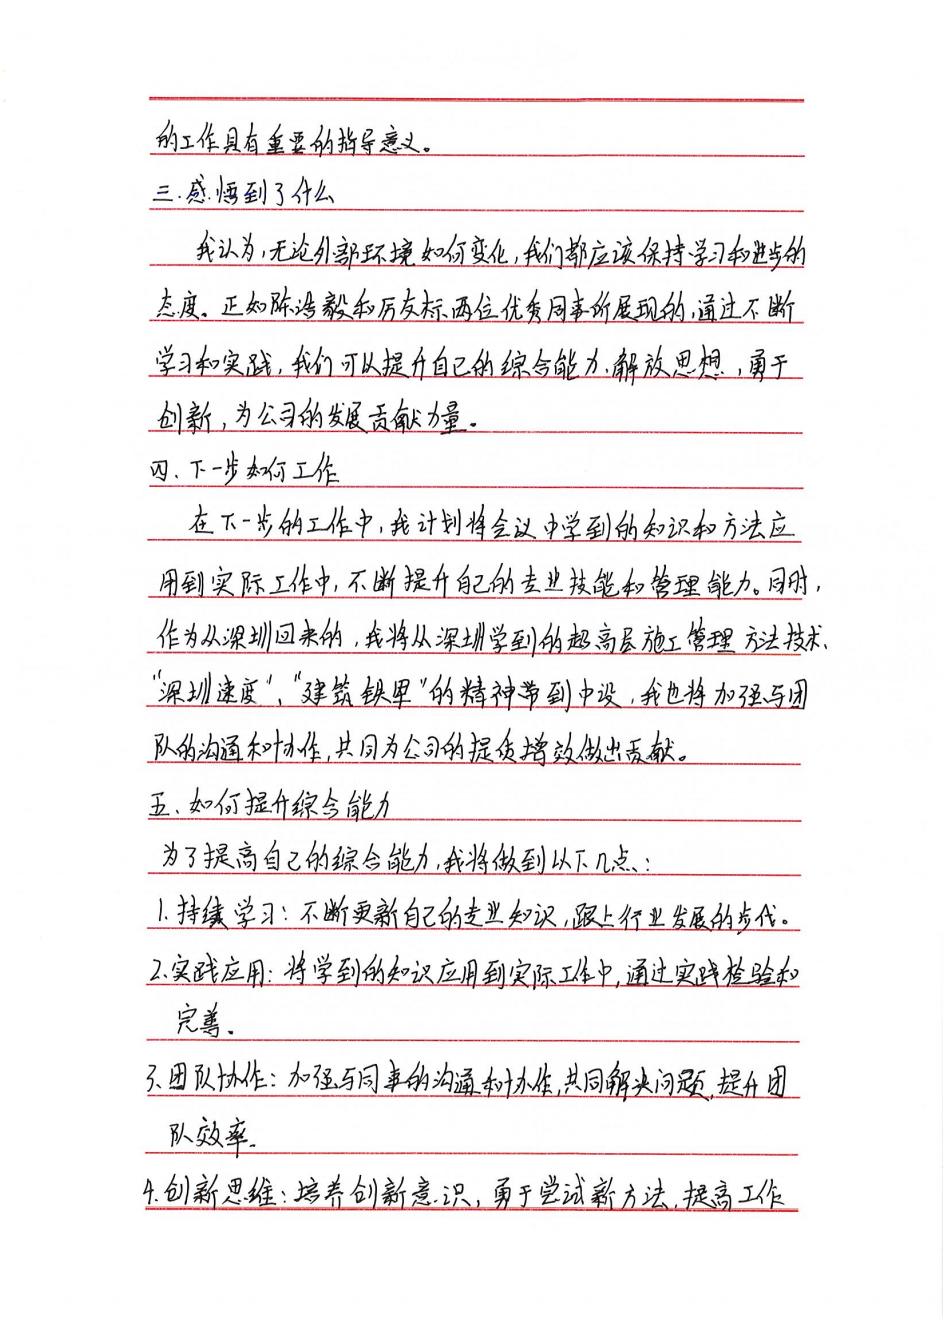 的工作具有重要的指导意义。
三.感悟到了什么
我认为,无论外部环境如何变化,我们都应该保持学习和进步的
态度。正如陈浩毅和厉友标两位优秀同事所展现的,通过不断
学习和实践,我们可以提升自己的综合能力、解放思想,勇于
创新,为公司的发展贡献力量。
四、下一步如何工作
在下一步的工作中,我计划将会议中学到的知识和方法应
用到实际工作中,不断提升自己的专业技能和管理能力。同时,
作为从深圳回来的,我将从深圳学到的超高层施工管理方法技术、
“深圳速度”、“建筑铁军”的精神带到中设,我也将加强与团
队的沟通和协作,共同为公司的提质增效做出贡献。
五、如何提升综合能力
为了提高自己的综合能力,我将做到以下几点:
1.持续学习:不断更新自己的专业知识,跟上行业发展的步伐。
2.实践应用:将学到的知识应用到实际工作中,通过实践检验和
完善。
3.团队协作:加强与同事的沟通和协作,共同解决问题,提升团
队效率。
4.创新思维:培养创新意识,勇于尝试新方法,提高工作